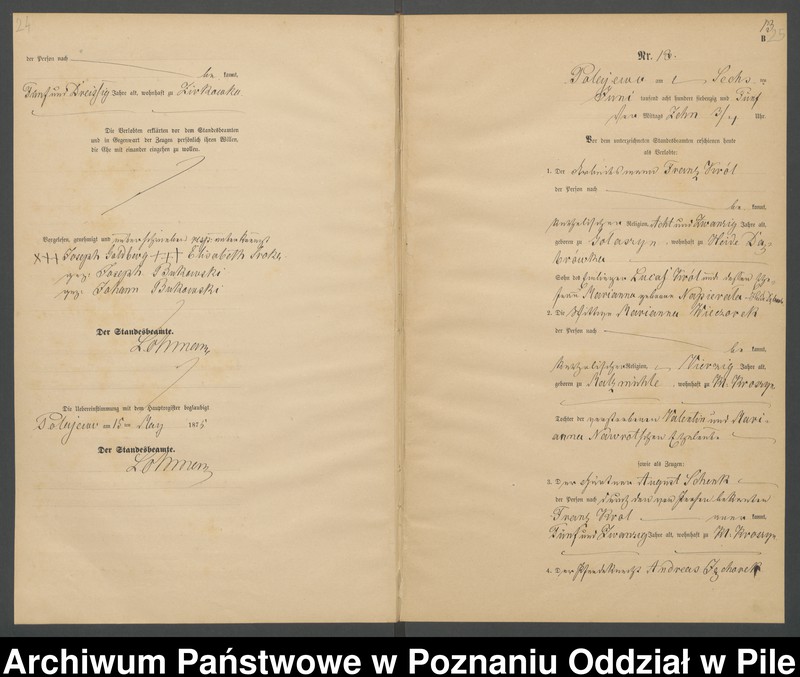 24
der Person nach
be kannt,
Fünf und Dreißig Jahre alt, wohnhaft zu Zirkowko
Die Verlobten erklärten vor dem Standesbeamten
und in Gegenwart der Zeugen persönlich ihren Willen,
die Ehe mit einander eingehen zu wollen.
Vorgelesen, genehmigt und unterschrieben resp: unterkreuzt
+++ Joseph Goldberg +++ Elisabeth
gez: Joseph Bukowski
gez: Johann Bukowski
Der Standesbeamte.
Lohmann
Die Uebereinstimmung mit dem Hauptregister beglaubigt
Polajewo am 15 ten May 1875
Der Standesbeamte.
Lohmann
13
25
B
Nr. 13.
Polajewo am Sechs ten
Juni tausend acht hundert siebenzig und Fünf
Vor Mittags Zehn 3/4 Uhr.
Vor dem unterzeichneten Standesbeamten erschienen heute
als Verlobte:
1. Der Arbeitsmann Franz Król
der Person nach
be kannt,
katholischer Religion, Acht und Zwanzig Jahre alt,
geboren zu Golaszyn, wohnhaft zu Heide Da-
brówka
Sohn des Einlieger Lucas Król und dessen Ehe-
frau Marianna geborene Napierala
2. Die Wittwe Marianna Wieczorek
der Person nach
be kannt,
katholischer Religion, Vierzig Jahre alt,
geboren zu Ratzmühle, wohnhaft zu Kl. Krosin
Tochter der verstorbenen Valentin und Mari-
anna Nawrotschen Eheleute
sowie als Zeugen:
3. Der Gärtner August Schenk
der Person nach durch den von Person bekannten
Franz Król aner kannt,
Fünf und Zwanzig Jahre alt, wohnhaft zu Kl. Krosin
4. Der Pferdeknecht Andreas
Archiwum Państwowe w Poznaniu Oddział w Pile